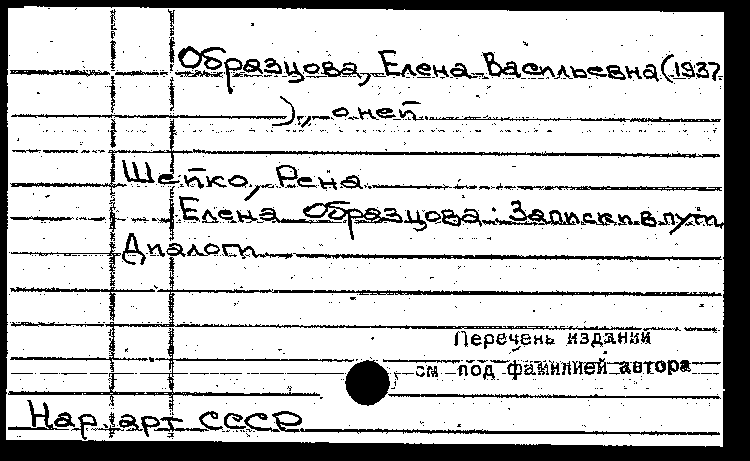 Образцова, Елена Васильевна (1937
), о ней
Шейко, Рена
Елена Образцова: Записки в пути
Диалоги
Перечень изданий
см под фамилией автора
Нар. арт СССР